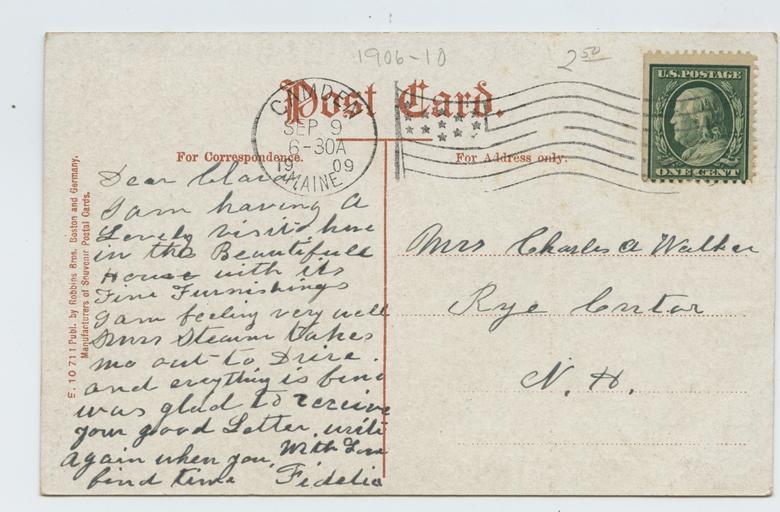 1906-10
2 50
Post Card.
U.S. POSTAGE
ONE CENT
CAMDEN
SEP 9
6-30A
19 09
MAINE
For Correspondence.
For Address only.
Dear Clara
I am having a
Lovely visit here
in the Beautifull
House with its
Fine Furnishings
I am feeling very well
Mrs Stearn takes
me out to Drive.
and evything is fine
was glad to receive
your good Letter. write
again when you
find time
With Love
Fidelia
Mrs Charles A Walker
Rye Center
N. H.
E. 10 711 Publ. by Robbins Bros. Boston and Germany.
Manufacturers of Souvenir Postal Cards.